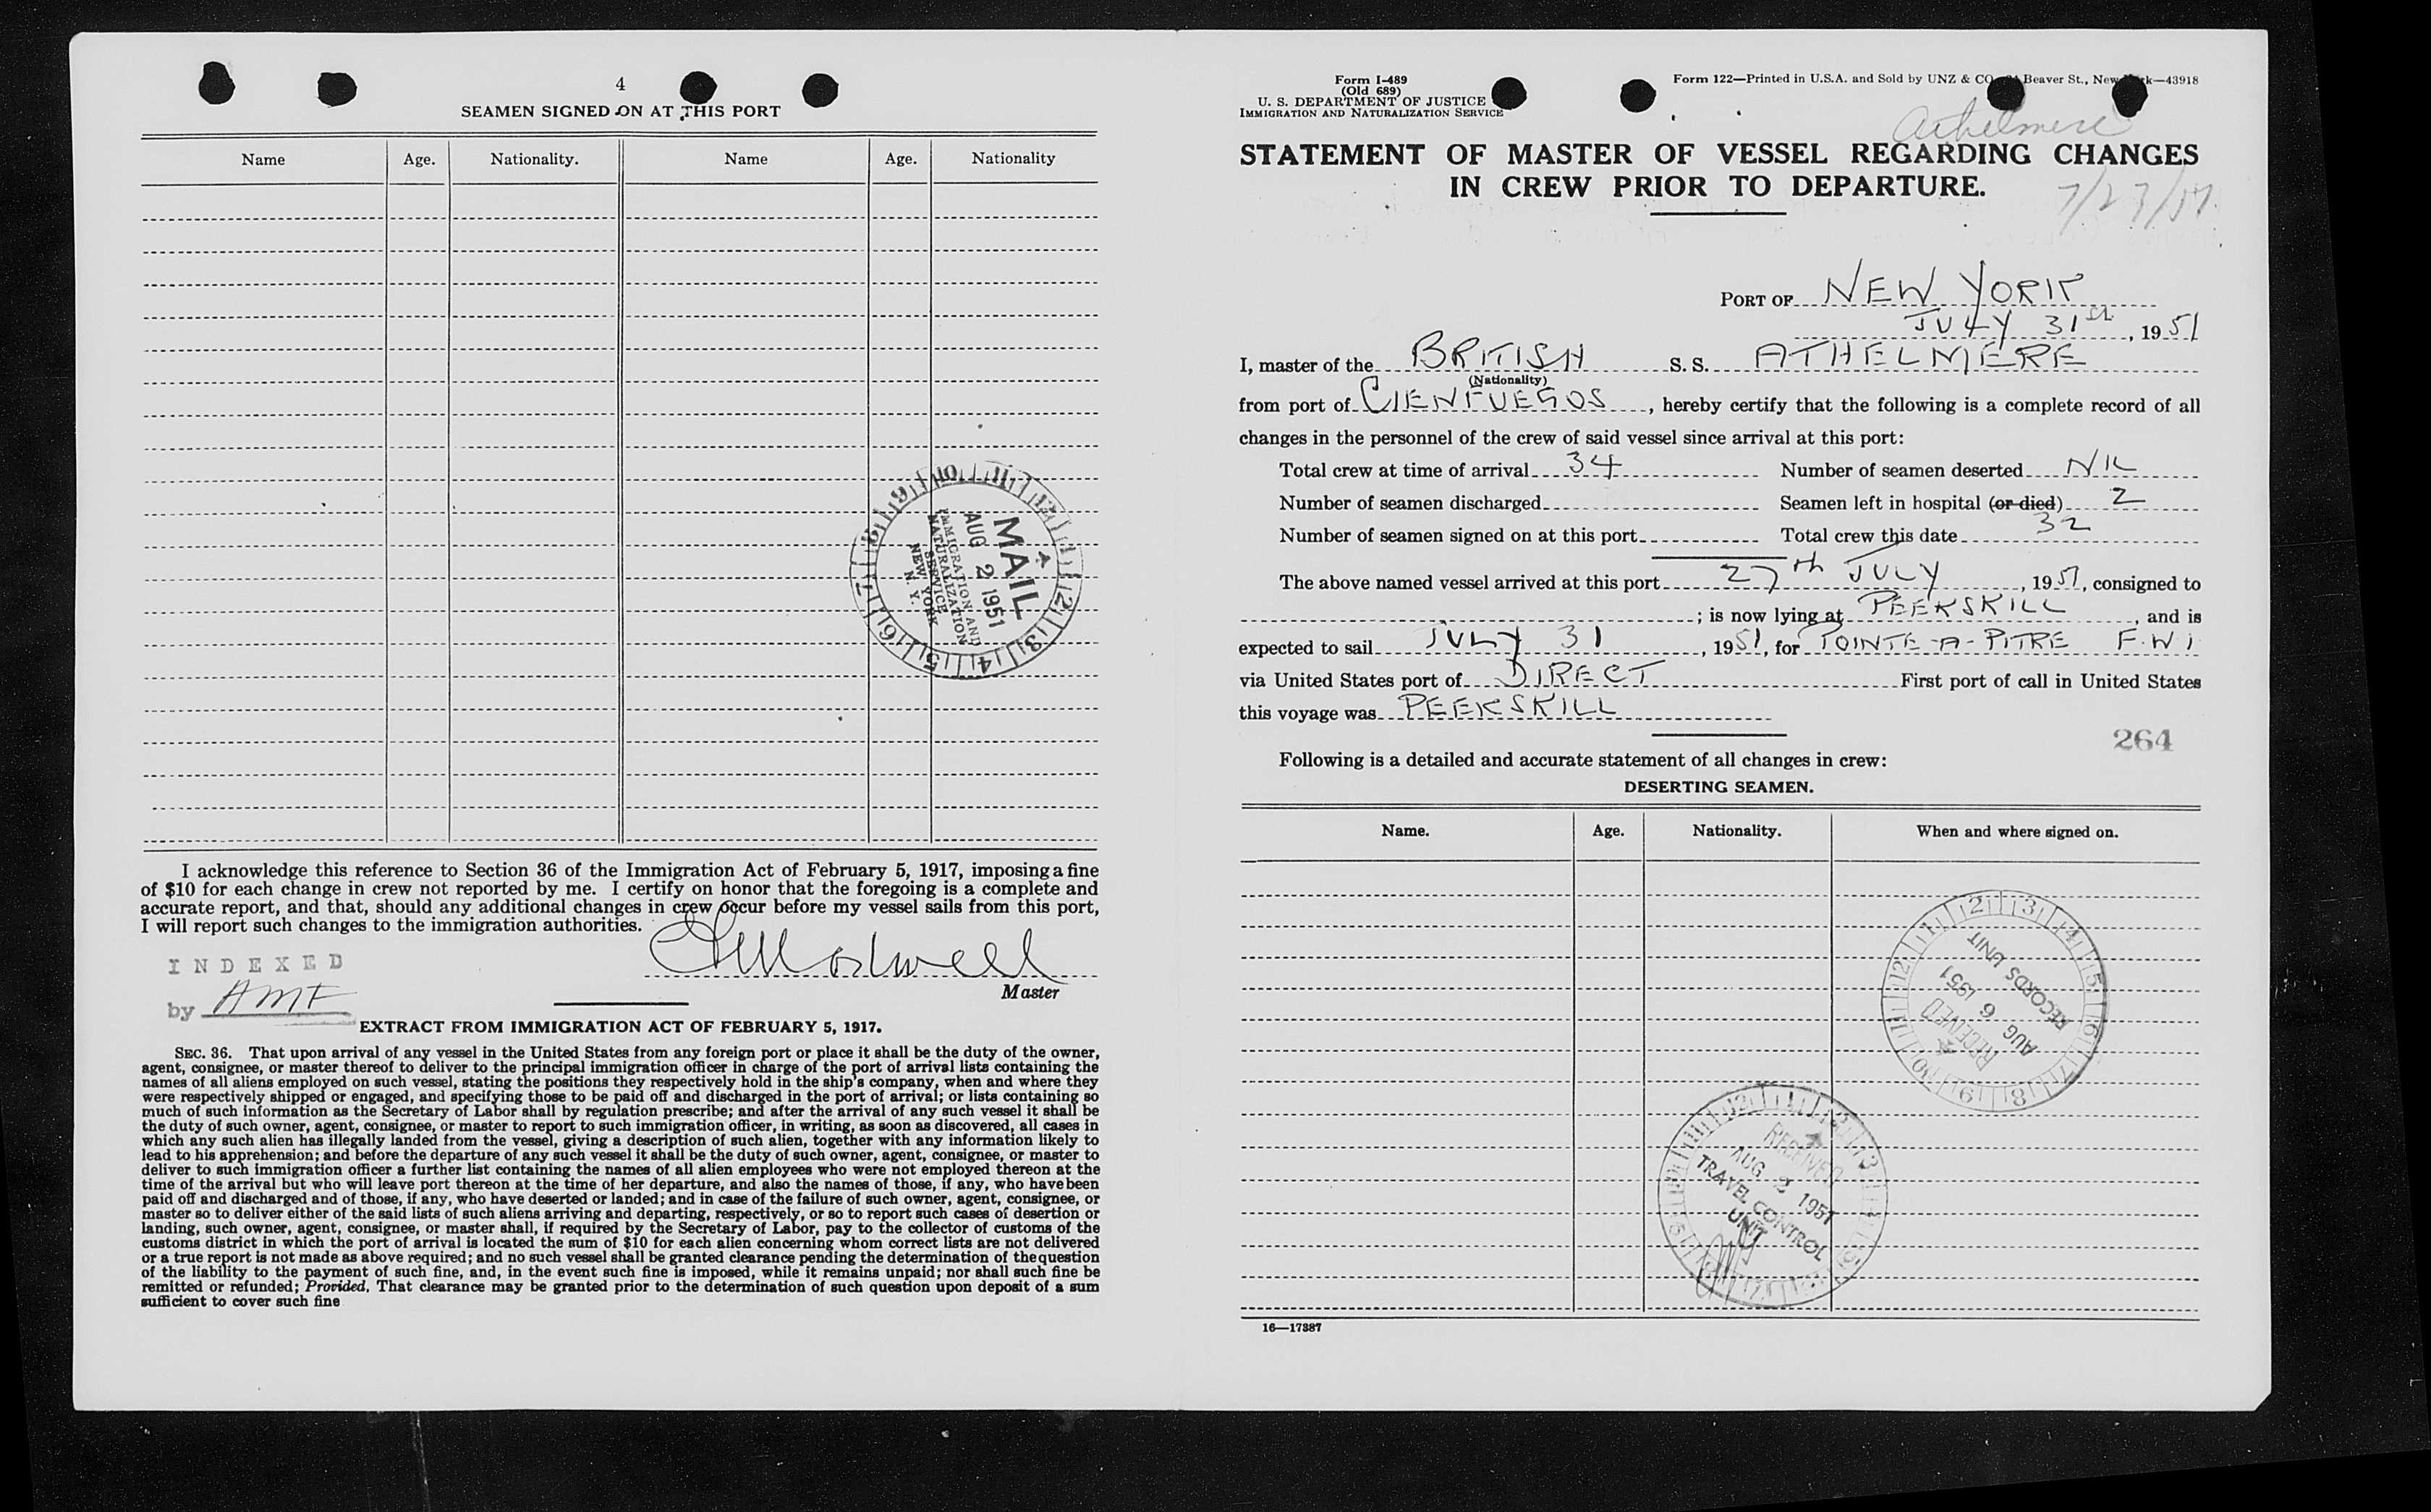 4
SEAMEN SIGNED ON AT THIS PORT
Name Age. Nationality. Name Age. Nationality
MAIL
AUG 2 1951
IMMIGRATION AND
NATURALIZATION
SERVICE
NEW YORK
N. Y.
I acknowledge this reference to Section 36 of the Immigration Act of February 5, 1917, imposing a fine
of $10 for each change in crew not reported by me. I certify on honor that the foregoing is a complete and
accurate report, and that, should any additional changes in crew occur before my vessel sails from this port,
I will report such changes to the immigration authorities.
INDEXED
by AMF
Master
EXTRACT FROM IMMIGRATION ACT OF FEBRUARY 5, 1917.
SEC. 36. That upon arrival of any vessel in the United States from any foreign port or place it shall be the duty of the owner,
agent, consignee, or master thereof to deliver to the principal immigration officer in charge of the port of arrival lists containing the
names of all aliens employed on such vessel, stating the positions they respectively hold in the ship's company, when and where they
were respectively shipped or engaged, and specifying those to be paid off and discharged in the port of arrival; or lists containing so
much of such information as the Secretary of Labor shall by regulation prescribe; and after the arrival of any such vessel it shall be
the duty of such owner, agent, consignee, or master to report to such immigration officer, in writing, as soon as discovered, all cases in
which any such alien has illegally landed from the vessel, giving a description of such alien, together with any information likely to
lead to his apprehension; and before the departure of any such vessel it shall be the duty of such owner, agent, consignee, or master to
deliver to such immigration officer a further list containing the names of all alien employees who were not employed thereon at the
time of the arrival but who will leave port thereon at the time of her departure, and also the names of those, if any, who have been
paid off and discharged and of those, if any, who have deserted or landed; and in case of the failure of such owner, agent, consignee, or
master so to deliver either of the said lists of such aliens arriving and departing, respectively, or so to report such cases of desertion or
landing, such owner, agent, consignee, or master shall, if required by the Secretary of Labor, pay to the collector of customs of the
customs district in which the port of arrival is located the sum of $10 for each alien concerning whom correct lists are not delivered
or a true report is not made as above required; and no such vessel shall be granted clearance pending the determination of the question
of the liability to the payment of such fine, and, in the event such fine is imposed, while it remains unpaid; nor shall such fine be
remitted or refunded; Provided, That clearance may be granted prior to the determination of such question upon deposit of a sum
sufficient to cover such fine
Form I-489
(Old 689)
U. S. DEPARTMENT OF JUSTICE
IMMIGRATION AND NATURALIZATION SERVICE
Form 122—Printed in U.S.A. and Sold by UNZ & CO Beaver St., New York—43918
Athelmere
STATEMENT OF MASTER OF VESSEL REGARDING CHANGES
IN CREW PRIOR TO DEPARTURE.
7/27/51
PORT OF NEW YORK
JULY 31st, 1951
I, master of the BRITISH S. S. ATHELMERE
(Nationality)
from port of CIENFUEGOS, hereby certify that the following is a complete record of all
changes in the personnel of the crew of said vessel since arrival at this port:
Total crew at time of arrival 34 Number of seamen deserted NIL
Number of seamen discharged Seamen left in hospital (or died) 2
Number of seamen signed on at this port Total crew this date 32
The above named vessel arrived at this port 27th JULY, 1951, consigned to
; is now lying at PEEKSKILL, and is
expected to sail JULY 31, 1951, for POINTE-A-PITRE F.W.I
via United States port of DIRECT First port of call in United States
this voyage was PEEKSKILL
264
Following is a detailed and accurate statement of all changes in crew:
DESERTING SEAMEN.
Name. Age. Nationality. When and where signed on.
RECEIVED
AUG 6 1951
RECORDS UNIT
RECEIVED
AUG 2 1951
TRAVEL CONTROL
UNIT
16—17387